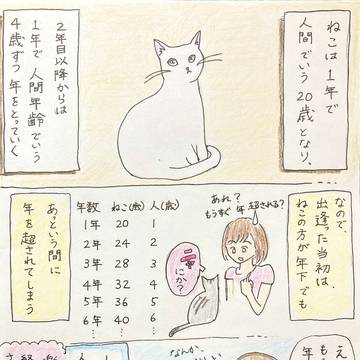 ねこは1年で
人間でいう20歳となり、
2年目以降からは
1年で人間年齢でいう
4歳ずつ年をとっていく
なので、
出逢った当初は、
ねこの方が年下でも
あれ?
もうすぐ年超される?
にか?
年数 ねこ(歳) 人(歳)
1年 20 1
2年 24 2
3年 28 3
4年 32 4
5年 36 5
6年 40 6
あっという間に
年を超されてしまう
なんか、